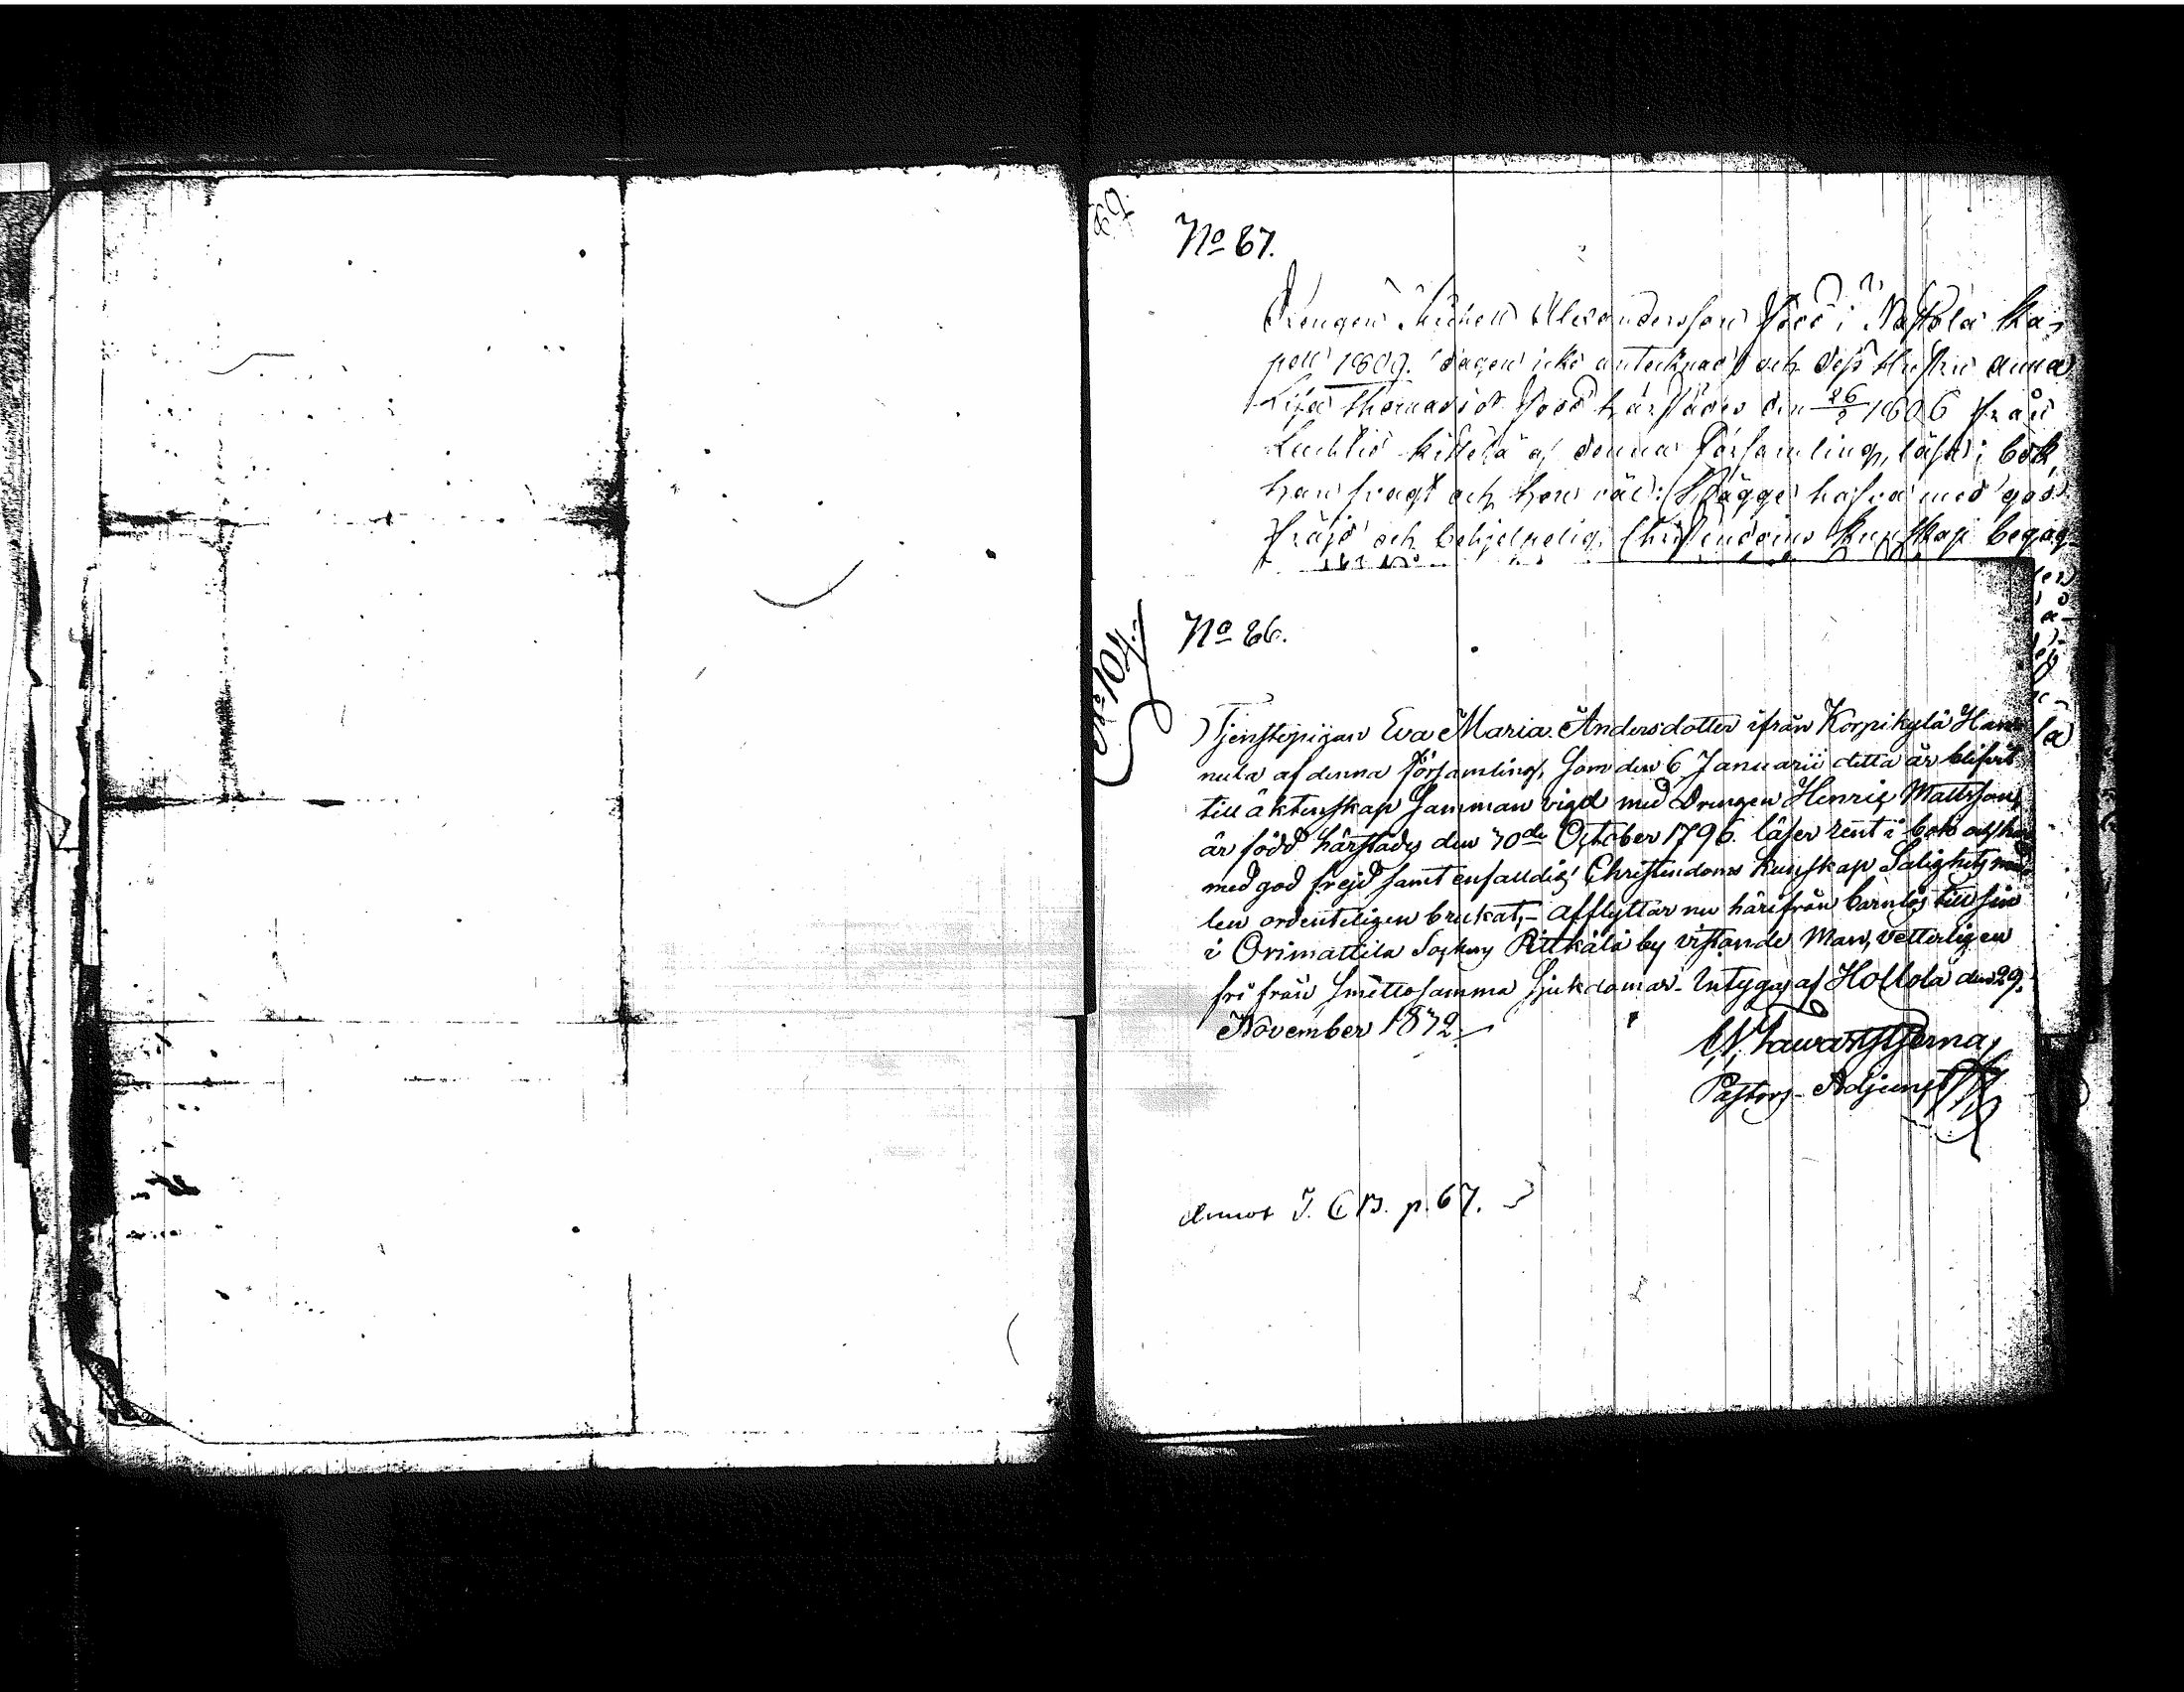 No 67.
Drengen Michell Alexandersson född i Nastola Ka-
pell 1809. dagen icke antecknad och dess Hustru Anna
Lisa Thomasdr född härstädes den 26/2 1806 från
Luhtis Kittelä af denna Församling, läsa i bok,
han svagt och hon väl: Bägge hafva med god
fräjd och behjelpelig Christendoms Kunskap begag-
No 104.
No 66.
Tjenstepigan Eva Maria Andersdotter ifrån Korpikylä Han
nula af denna Församling, som den 6 Januarii detta år blifvit
till äktenskap samman vigd med Drengen Henric Mattsson,
är född härstädes den 30de October 1796. läser rent i bok och har
med god frejd samt enfalldig Christendoms kunskap Salighetsmed-
len ordenteligen brukat, - afflyttar nu härifrån barnlös till sin
i Orimattila Sockens Pitkälä by vistande Man, vetterligen
fri från smittosamma sjukdomar. Intygas af Hollola den 29.
November 1832.
Tawaststjerna,
Pastors-Adjunct
Annot I. C. B. p. 67.